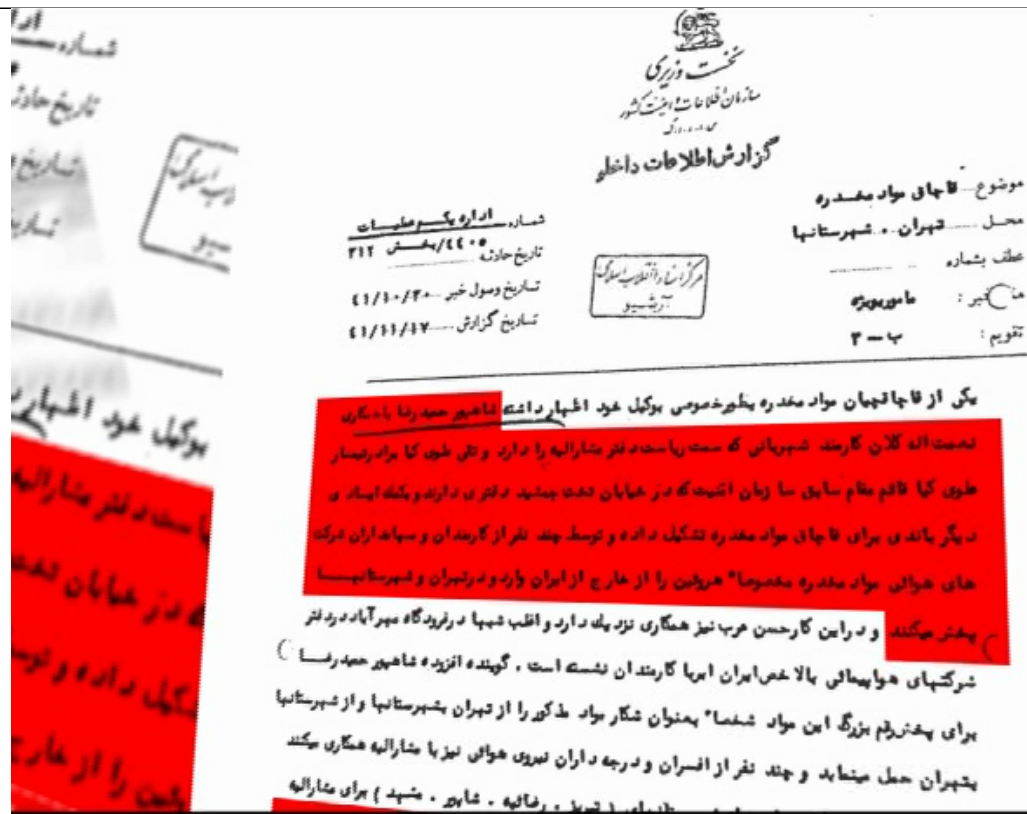 نخست وزیری
سازمان اطلاعات و امنیت کشور
س.ا.و.ا.ک
گزارش اطلاعات داخلی
موضوع قاچاق مواد مخدره
محل تهران . شهرستانها
عطف بشماره
خبر : مامور ویژه
تقویم : ب - ۳
شماره اداره یکم عملیات
۴۴۰۵/بخش ۳۱۲
تاریخ حادثه
تاریخ وصول خبر ۴۱/۱۰/۳۰
تاریخ گزارش ۴۱/۱۱/۱۷
مرکز اسناد انقلاب اسلامی
آرشیو
یکی از قاچاقچیان مواد مخدره بطور خصوصی بوکیل خود اظهار داشته شاهپور حمید رضا با همکاری
نعمت اله کلان کارمند شهربانی که سمت ریاست دفتر مشارالیه را دارد و تقی علوی کیا برادر تیمسار
علوی کیا قائم مقام سابق سازمان امنیت که در خیابان تخت جمشید دفتری دارند و بکمک ایادی
دیگر باندی برای قاچاق مواد مخدره تشکیل داده و توسط چند نفر از کارمندان و میهمانداران شرکت
های هوائی مواد مخدره مخصوصا" هروئین را از خارج از ایران وارد و در تهران و شهرستانها
پخش میکنند و در این کار حسن عرب نیز همکاری نزدیک دارد و اغلب شبها در فرودگاه مهرآباد در دفتر
شرکتهای هواپیمائی بالاخص ایران ایر با کارمندان نشسته است . گوینده افزوده شاهپور حمید رضا
برای پخش رقم بزرگ این مواد شخصا" بعنوان شکار مواد مذکور را از تهران بشهرستانها و از شهرستانها
بتهران حمل مینماید و چند نفر از افسران و درجه داران نیروی هوائی نیز با مشارالیه همکاری میکنند
( تبریز . رضائیه . شاپور . مشهد ) برای مشارالیه
شماره
تاریخ حادثه
بوکیل خود اظهار
یاست دفتر مشارالیه
در خیابان تخت
تشکیل داده و توسط
وئین را از خارج